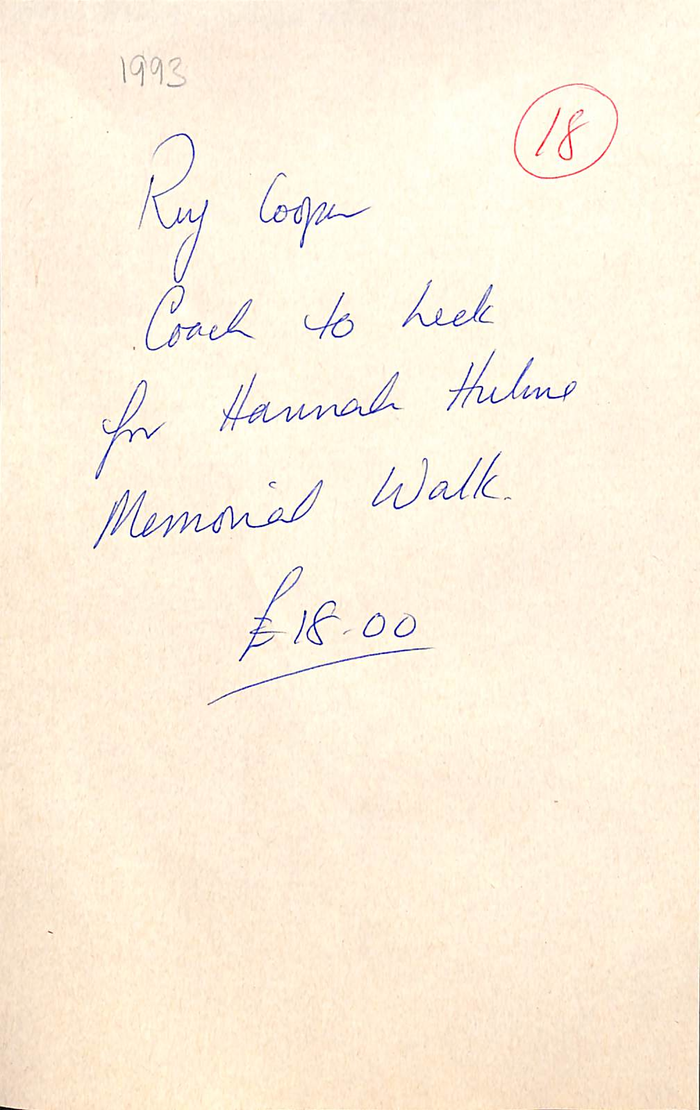 1993
18
Ray Cooper
Coach to Leek
for Hannah Hulme
Memorial Walk.
£18-00